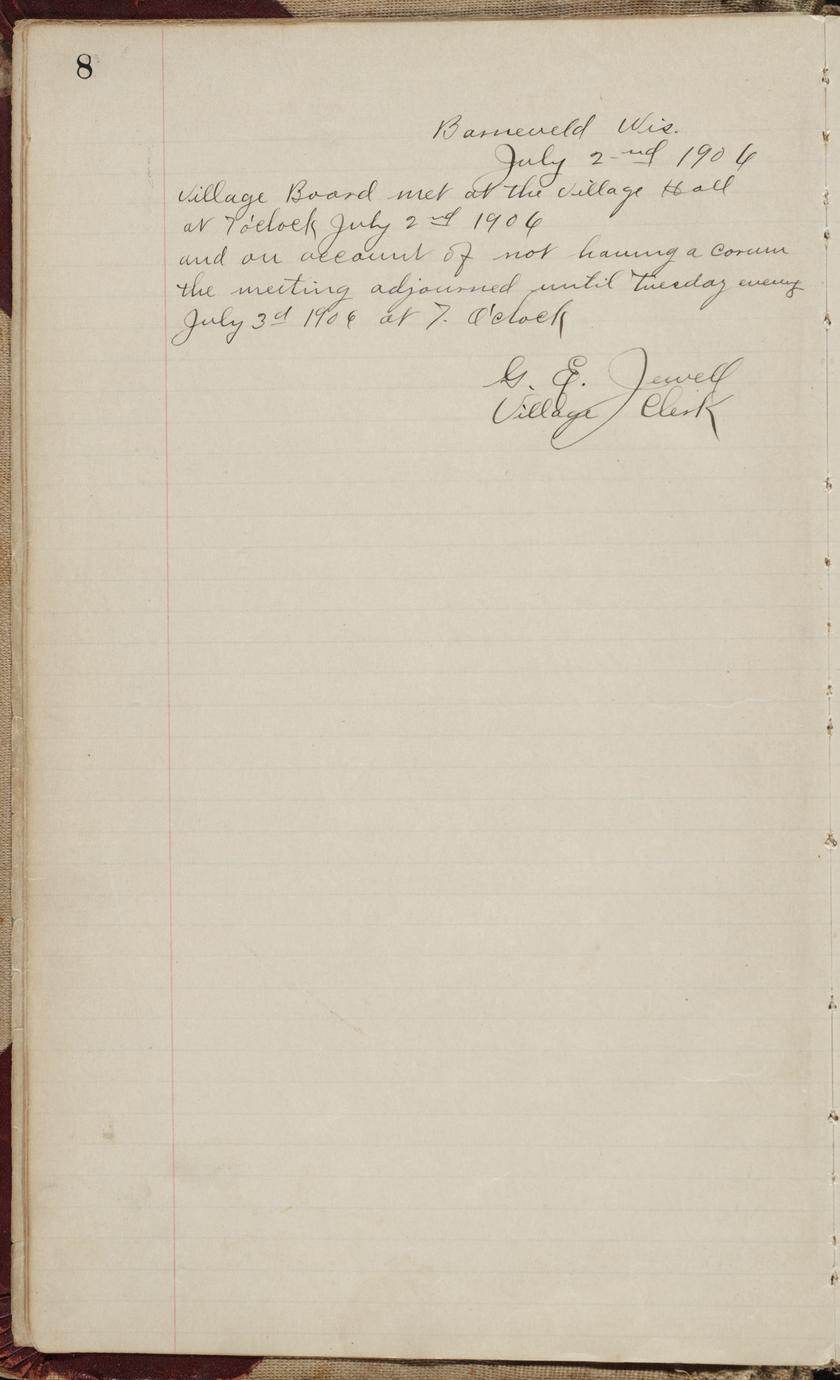 8
Barneveld Wis.
July 2nd 1906
Village Board met at the Village Hall
at 7o'clock July 2nd 1906
and on account of not having a corum
the meeting adjourned until Tuesday evening
July 3d 1906 at 7. O'clock
G. E. Jewell
Village Clerk